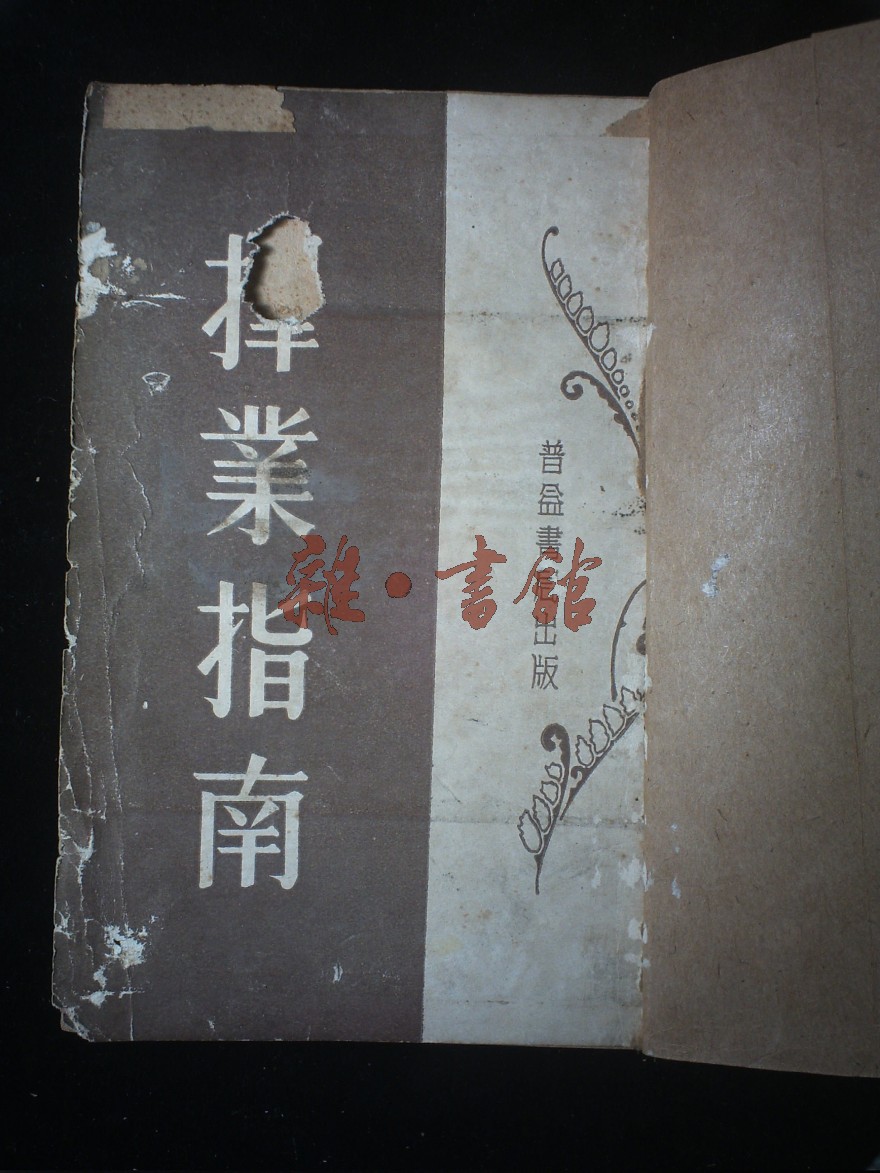 擇業指南
普益書局出版
雜·書館